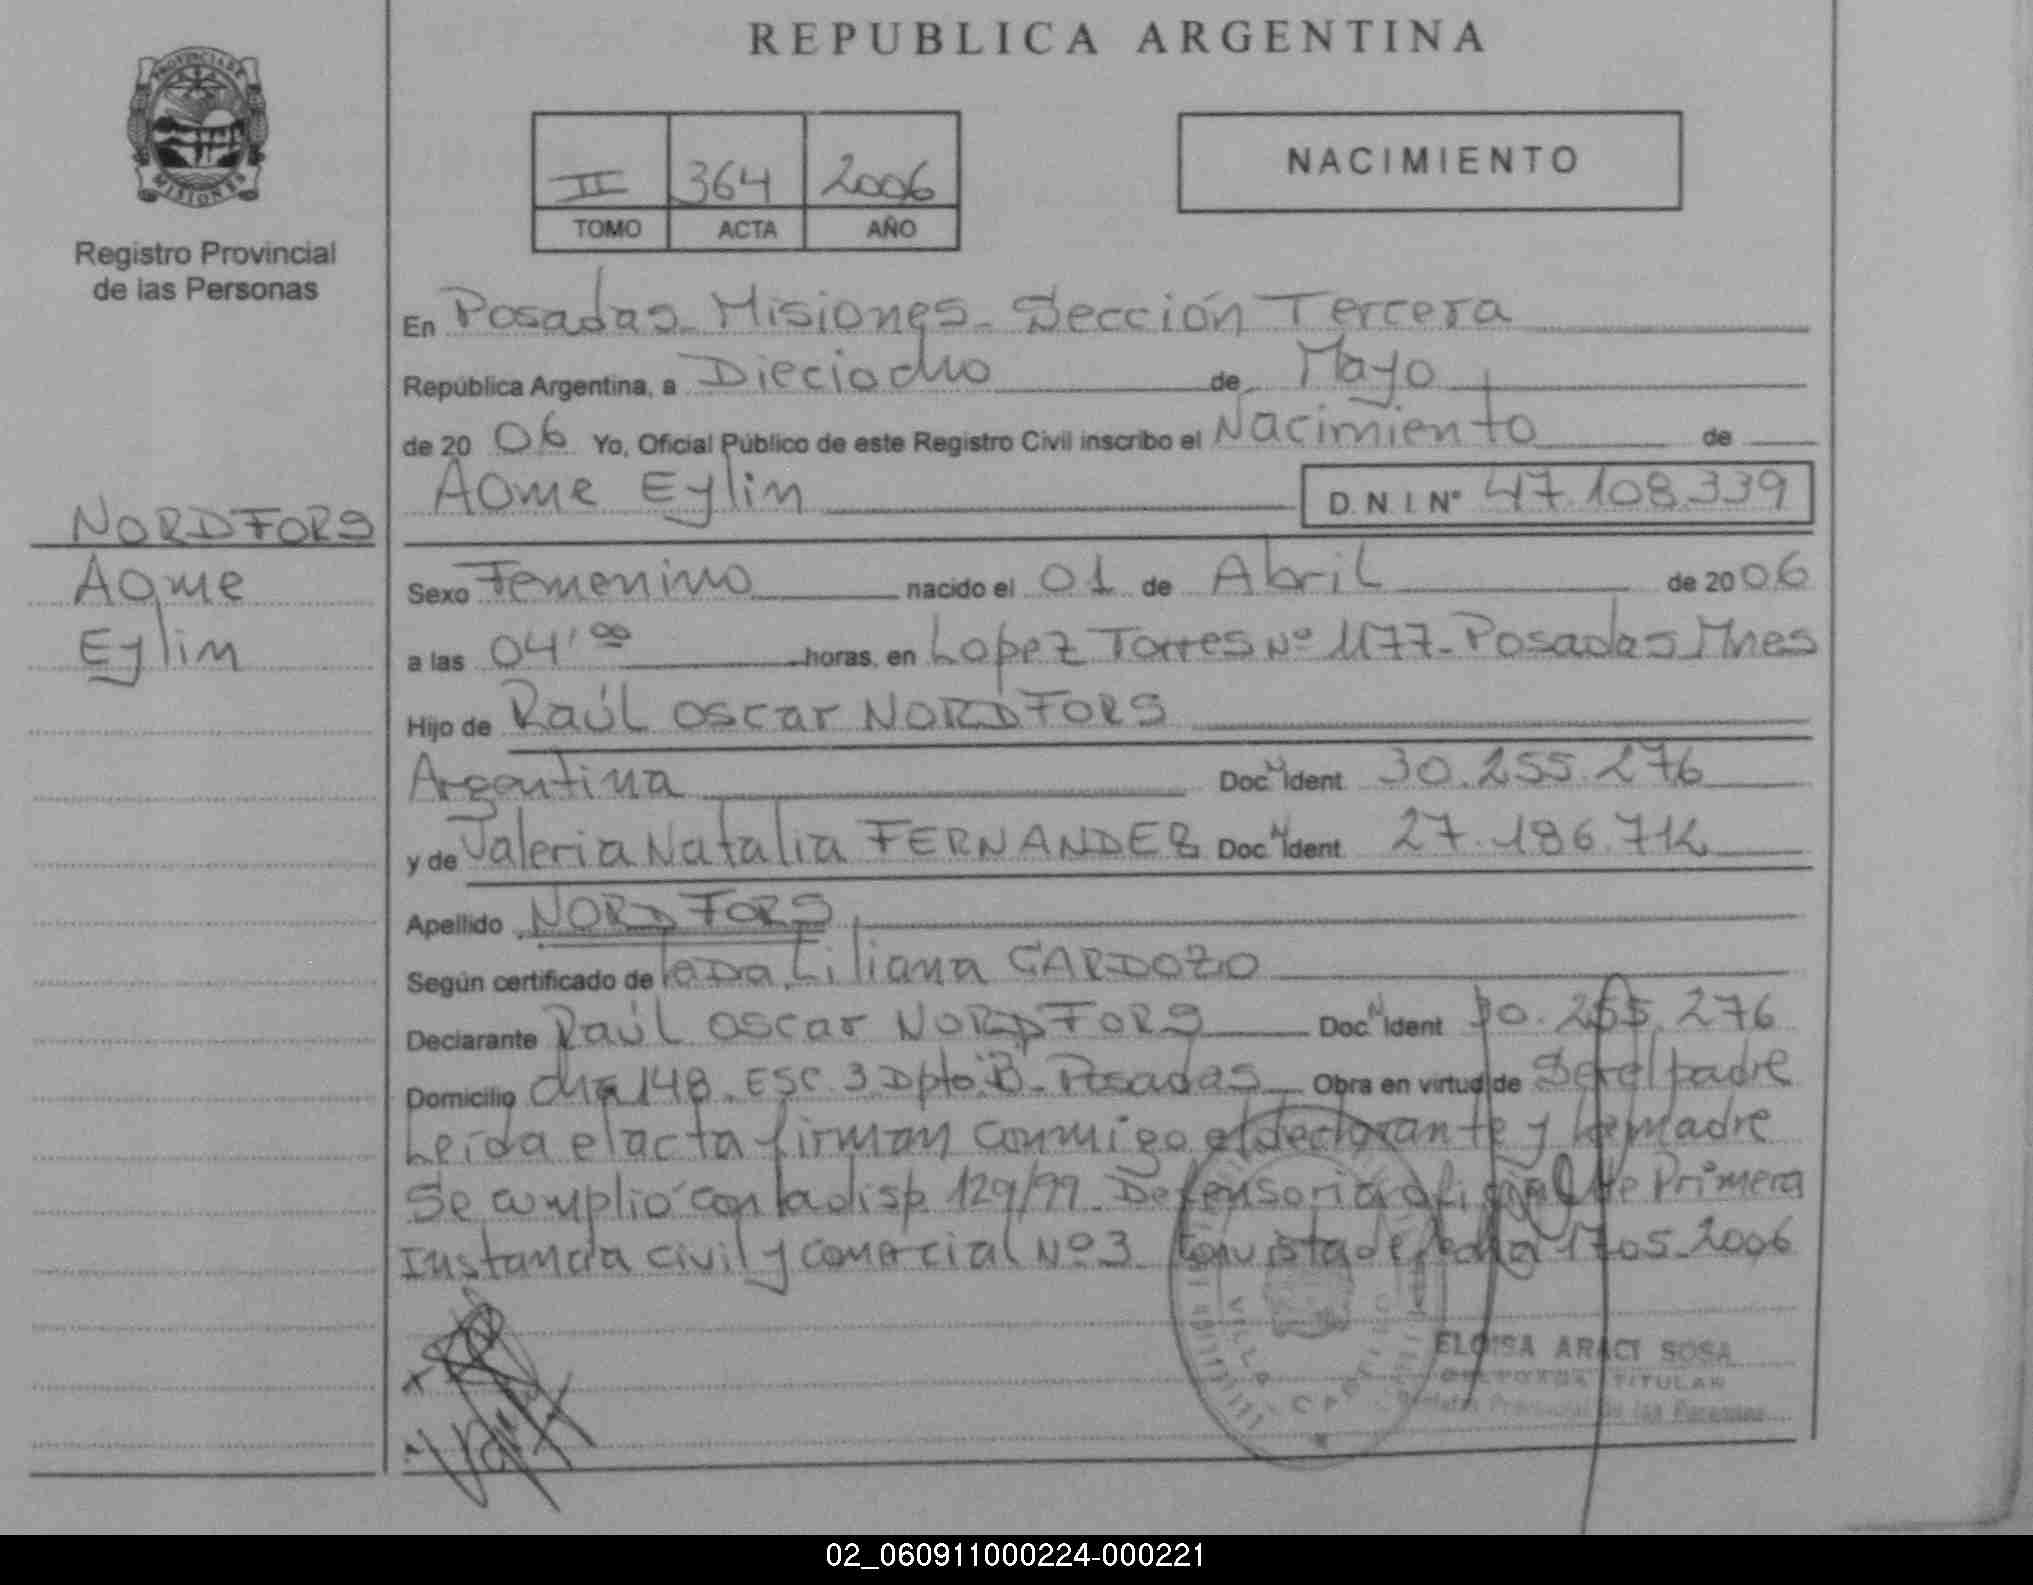 REPUBLICA ARGENTINA
PROVINCIA DE
MISIONES
Registro Provincial
de las Personas
II 364 2006
TOMO ACTA AÑO
NACIMIENTO
En Posadas - Misiones - Sección Tercera
República Argentina, a Dieciocho de Mayo
de 20 06 Yo, Oficial Público de este Registro Civil inscribo el Nacimiento de
Aome Eylin D.N.I. N° 47.108.339
NORDFORS
Aome
Eylin
Sexo Femenino nacido el 01 de Abril de 20 06
a las 04'00 horas, en Lopez Torres Nº 1177 - Posadas Mnes
Hijo de Raúl Oscar NORDFORS
Argentina Doc. Ident. 30.255.276
y de Valeria Natalia FERNANDEZ Doc. Ident. 27.186.712
Apellido NORDFORS
Según certificado de la Dra. Liliana CARDOZO
Declarante Raúl Oscar NORDFORS Doc. Ident. 30.255.276
Domicilio Cha 148 - ESC. 3 Dpto "B" - Posadas Obra en virtud de Ser el padre
Leída el acta firman conmigo el declarante y la madre
Se cumplió con la disp. 129/99 - Defensoría oficial de Primera
Instancia civil y comercial Nº 3 Con vista de fecha 17-05-2006
ELOISA ARACI SOSA
TITULAR
Registro Provincial de las Personas
02_060911000224-000221